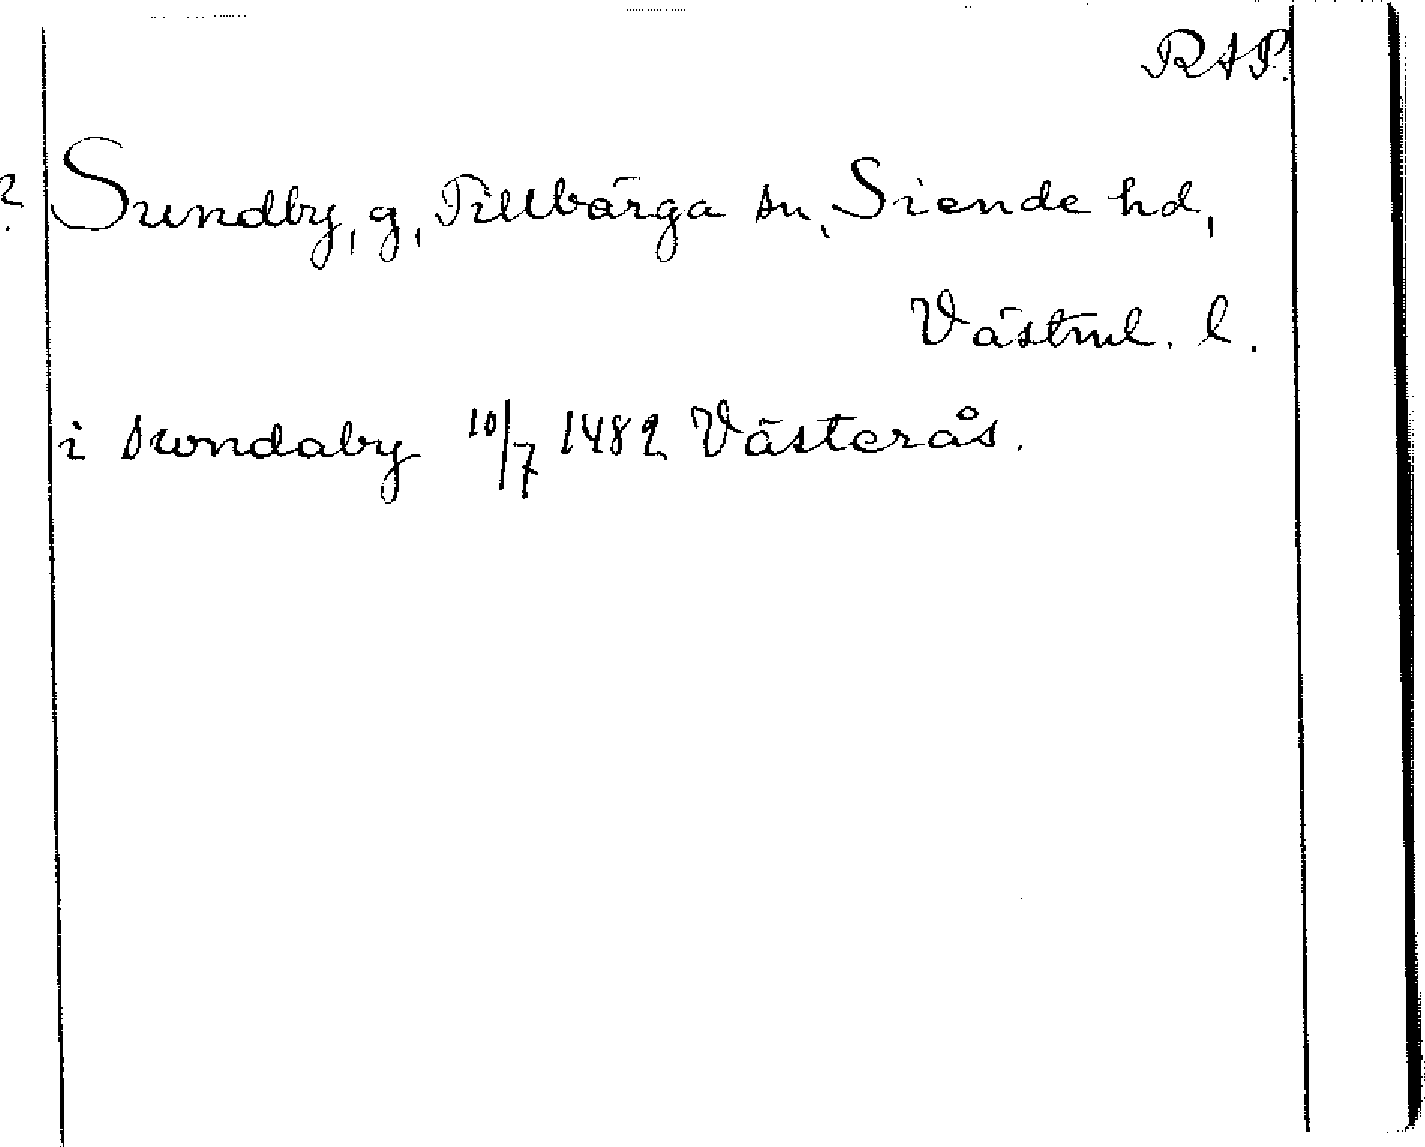 RAP.
? Sundby, g, Tillbärga sn, Siende hd,
Västml. l.
i swndaby 10/7 1482 Västerås.